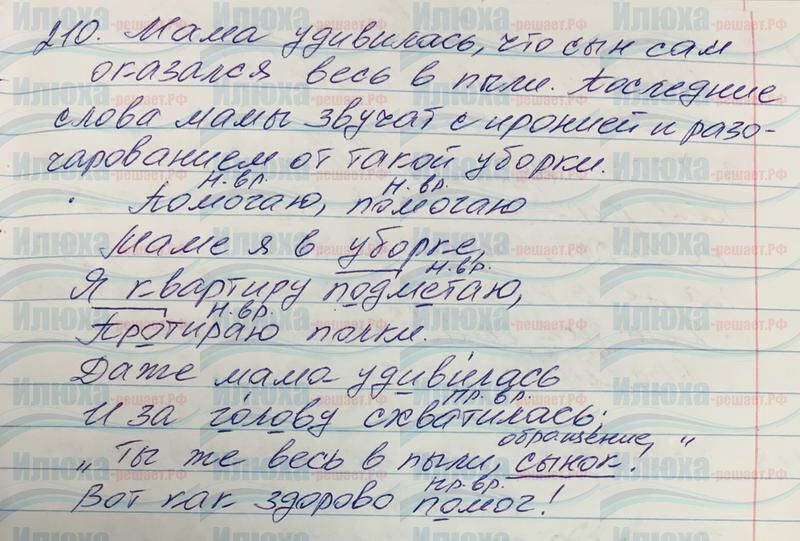 210. Мама удивилась, что сын сам
оказался весь в пыли. Последние
слова мамы звучат с иронией и разо-
чарованием от такой уборки.
н. вр. н. вр.
Помогаю, помогаю
Маме я в уборке,
н. вр.
Я квартиру подметаю,
н. вр.
Протираю полки.
Даже мама удивилась
пр. вр.
И за голову схватилась:
обращение
„Ты же весь в пыли, сынок!"
пр. вр.
Вот как здорово помог!
Илюха-решает.РФ